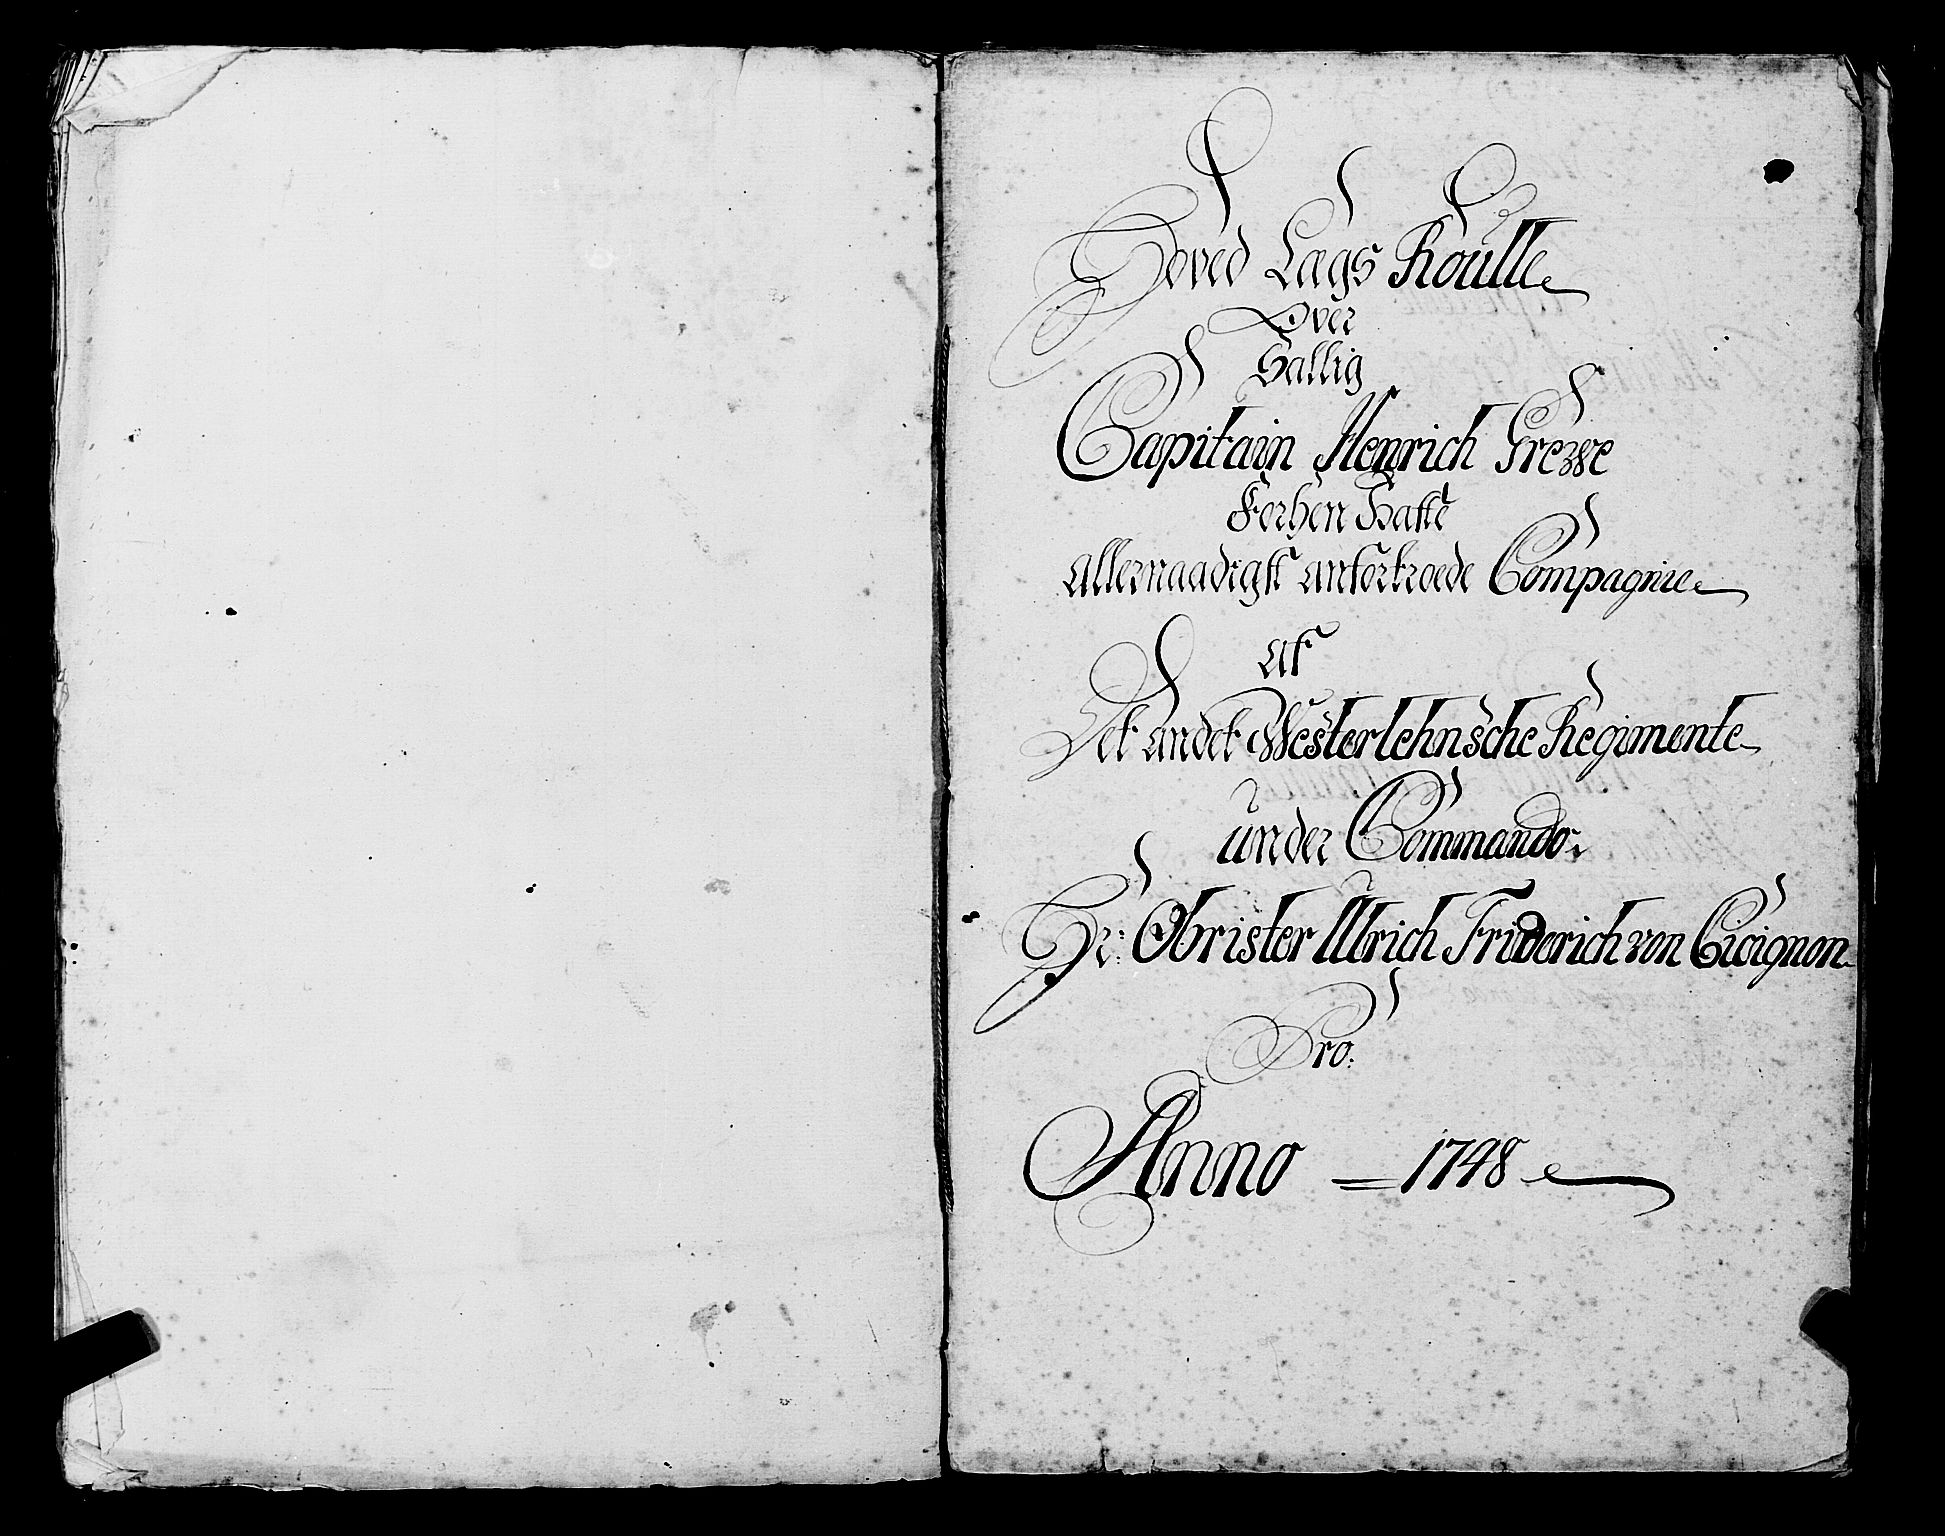 Hoved Lægs Roulle
Over
Sallig
Capitain Henrich Grewe
Forhen Hafte
allernaadigst anfortroede Compagnie
af
Det andet Westerlehnsche Regimente
under Commando.
Hr: Obrister Ulrich Friderich von Cicignon
Pro:
Anno = 1748